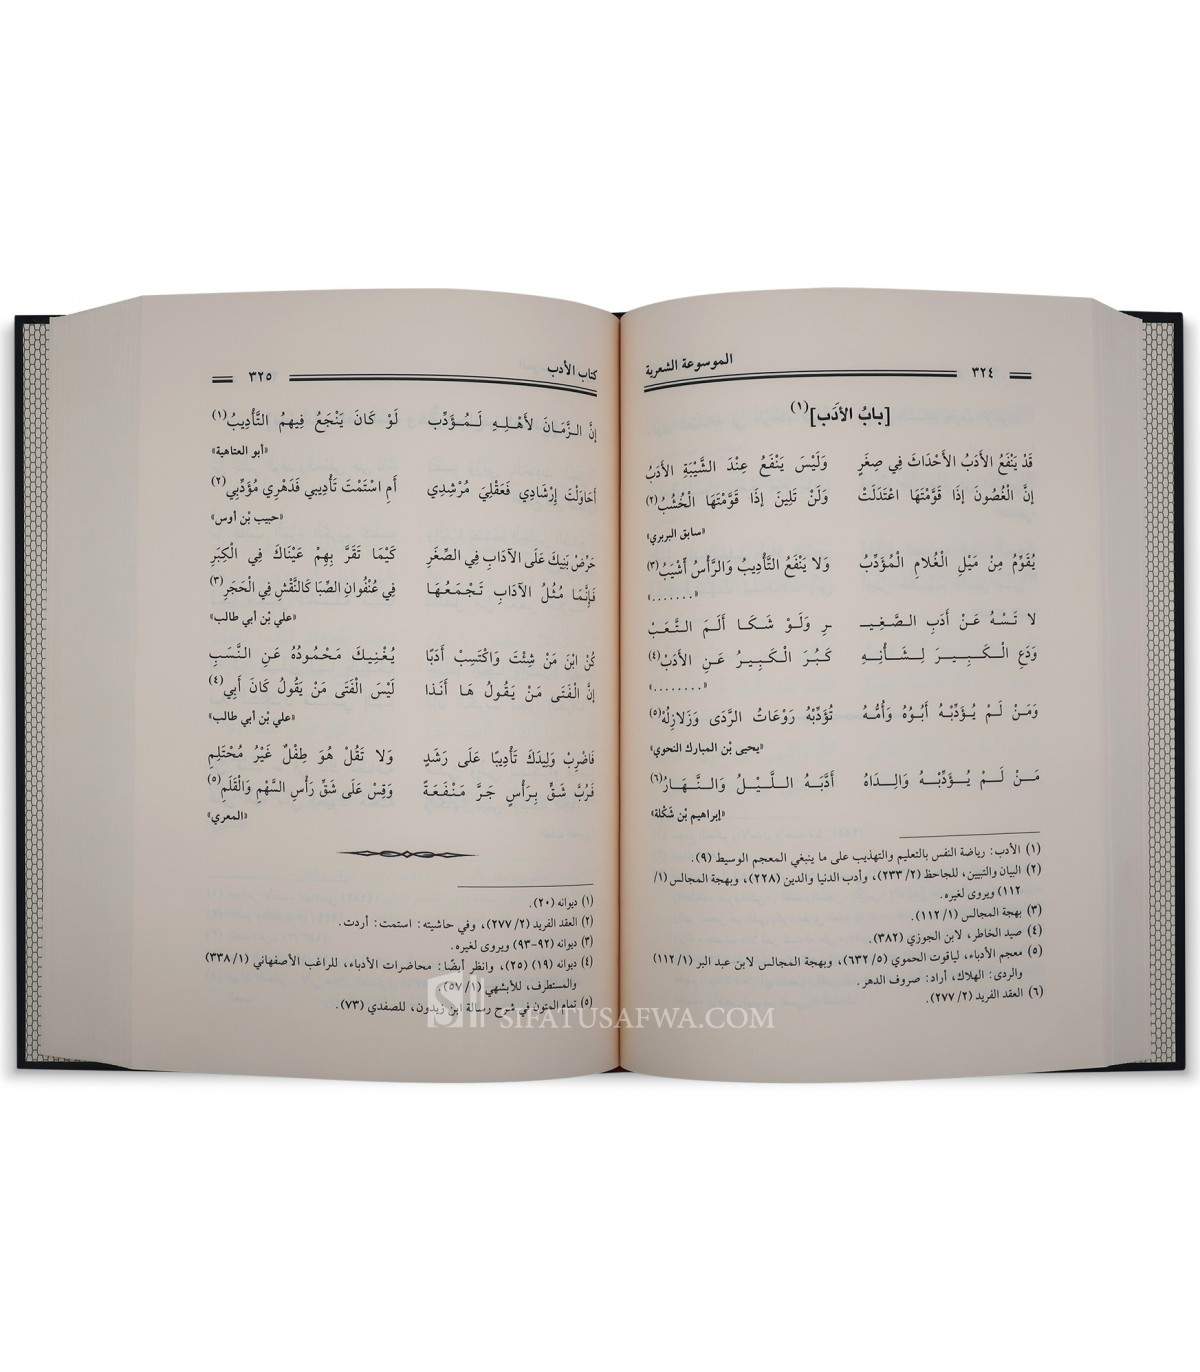 الموسوعة الشعرية ٣٢٤
[بابُ الأَدَب](١)
قَدْ يَنْفَعُ الأَدَبُ الأَحْدَاثَ فِي صِغَرٍ وَلَيْسَ يَنْفَعُ عِنْدَ الشَّيْبَةِ الأَدَبُ
إنَّ الْغُصُونَ إذَا قَوَّمْتَهَا اعْتَدَلَتْ وَلَنْ تَلِينَ إذَا قَوَّمْتَهَا الْخُشُبُ(٢)
«سابق البربري»
يُقَوِّمُ مِنْ مَيْلِ الْغُلامِ الْمُؤَدِّبُ وَلا يَنْفَعُ التَّأْدِيبُ وَالرَّأْسُ أَشْيَبُ(٣)
«.......»
لا تَسْهُ عَنْ أَدَبِ الصَّغِيــ ـرِ وَلَوْ شَكَا أَلَمَ التَّعَبْ
وَدَعِ الْكَبِيرَ لِشَأْنِهِ كَبُرَ الْكَبِيرُ عَنِ الأَدَبْ(٤)
«........»
وَمَنْ لَمْ يُؤَدِّبْهُ أَبُوْهُ وَأُمُّهُ تُؤَدِّبْهُ رَوْعَاتُ الرَّدَى وَزَلازِلُهْ(٥)
«يحيى بْن المبارك النحوي»
مَنْ لَمْ يُؤَدِّبْهُ وَالِدَاهُ أَدَّبَهُ اللَّيْلُ وَالنَّهَارُ(٦)
«إبراهيم بْن شَكْلة»
(١) الأدب: رياضة النفس بالتعليم والتهذيب على ما ينبغي المعجم الوسيط (٩).
(٢) البيان والتبيين، للجاحظ (٢/ ٢٣٣)، وأدب الدنيا والدين (٢٢٨)، وبهجة المجالس (١/
١١٢) ويروى لغيره.
(٣) بهجة المجالس (١/ ١١٢).
(٤) صيد الخاطر، لابن الجوزي (٣٨٢).
(٥) معجم الأدباء، لياقوت الحموي (٥/ ٦٣٢)، وبهجة المجالس لابن عبد البر (١/ ١١٢)
والردى: الهلاك، أراد: صروف الدهر.
(٦) العقد الفريد (٢/ ٢٧٧).
كتاب الأدب ٣٢٥
إنَّ الزَّمَانَ لأَهْلِهِ لَمُؤَدِّب لَوْ كَانَ يَنْجَعُ فِيهِمُ التَّأْدِيبُ(١)
«أبو العتاهية»
أحَاوَلْتَ إرْشَادِي فَعَقْلِيَ مُرْشِدِي أَمِ اسْتَمْتَ تَأْدِيبي فَدَهْرِي مُؤَدِّبِي(٢)
«حبيب بْن أوس»
حَرِّضْ بَنِيكَ عَلَى الآدَابِ فِي الصِّغَرِ كَيْمَا تَقَرَّ بِهِمْ عَيْنَاكَ فِي الْكِبَرِ
فَإِنَّمَا مُثُلُ الآدَابِ تَجْمَعُهَا فِي عُنْفُوانِ الصِّبَا كَالنَّقْشِ فِي الْحَجَرِ(٣)
«علي بْن أبي طالب»
كُنْ ابْنَ مَنْ شِئْتَ وَاكْتَسِبْ أَدَبًا يُغْنِيكَ مَحْمُودُهُ عَنِ النَّسَبِ
إنَّ الْفَتَى مَنْ يَقُولُ هَا أَنَذا لَيْسَ الْفَتَى مَنْ يَقُولُ كَانَ أَبِي(٤)
«علي بْن أبي طالب»
فَاضْرِبْ وَلِيدَكَ تَأْدِيبًا عَلَى رَشَدٍ وَلا تَقُلْ هُوَ طِفْلٌ غَيْرُ مُحْتَلِمِ
فَرُبَّ شَقٍّ بِرَأْسٍ جَرَّ مَنْفَعَةً وَقِسْ عَلَى شَقِّ رَأْسِ السَّهْمِ وَالْقَلَمِ(٥)
«المعري»
(١) ديوانه (٢٠).
(٢) العقد الفريد (٢/ ٢٧٧)، وفي حاشيته: استمت: أردت.
(٣) ديوانه (٩٢-٩٣) ويروى لغيره.
(٤) ديوانه (١٩) (٢٥)، وانظر أيضًا: محاضرات الأدباء، للراغب الأصفهاني (١/ ٣٣٨)
والمستطرف، للأبشهي (١/ ٥٧).
(٥) تمام المتون في شرح رسالة ابن زيدون، للصفدي (٧٣).
SIFATUSAFWA.COM